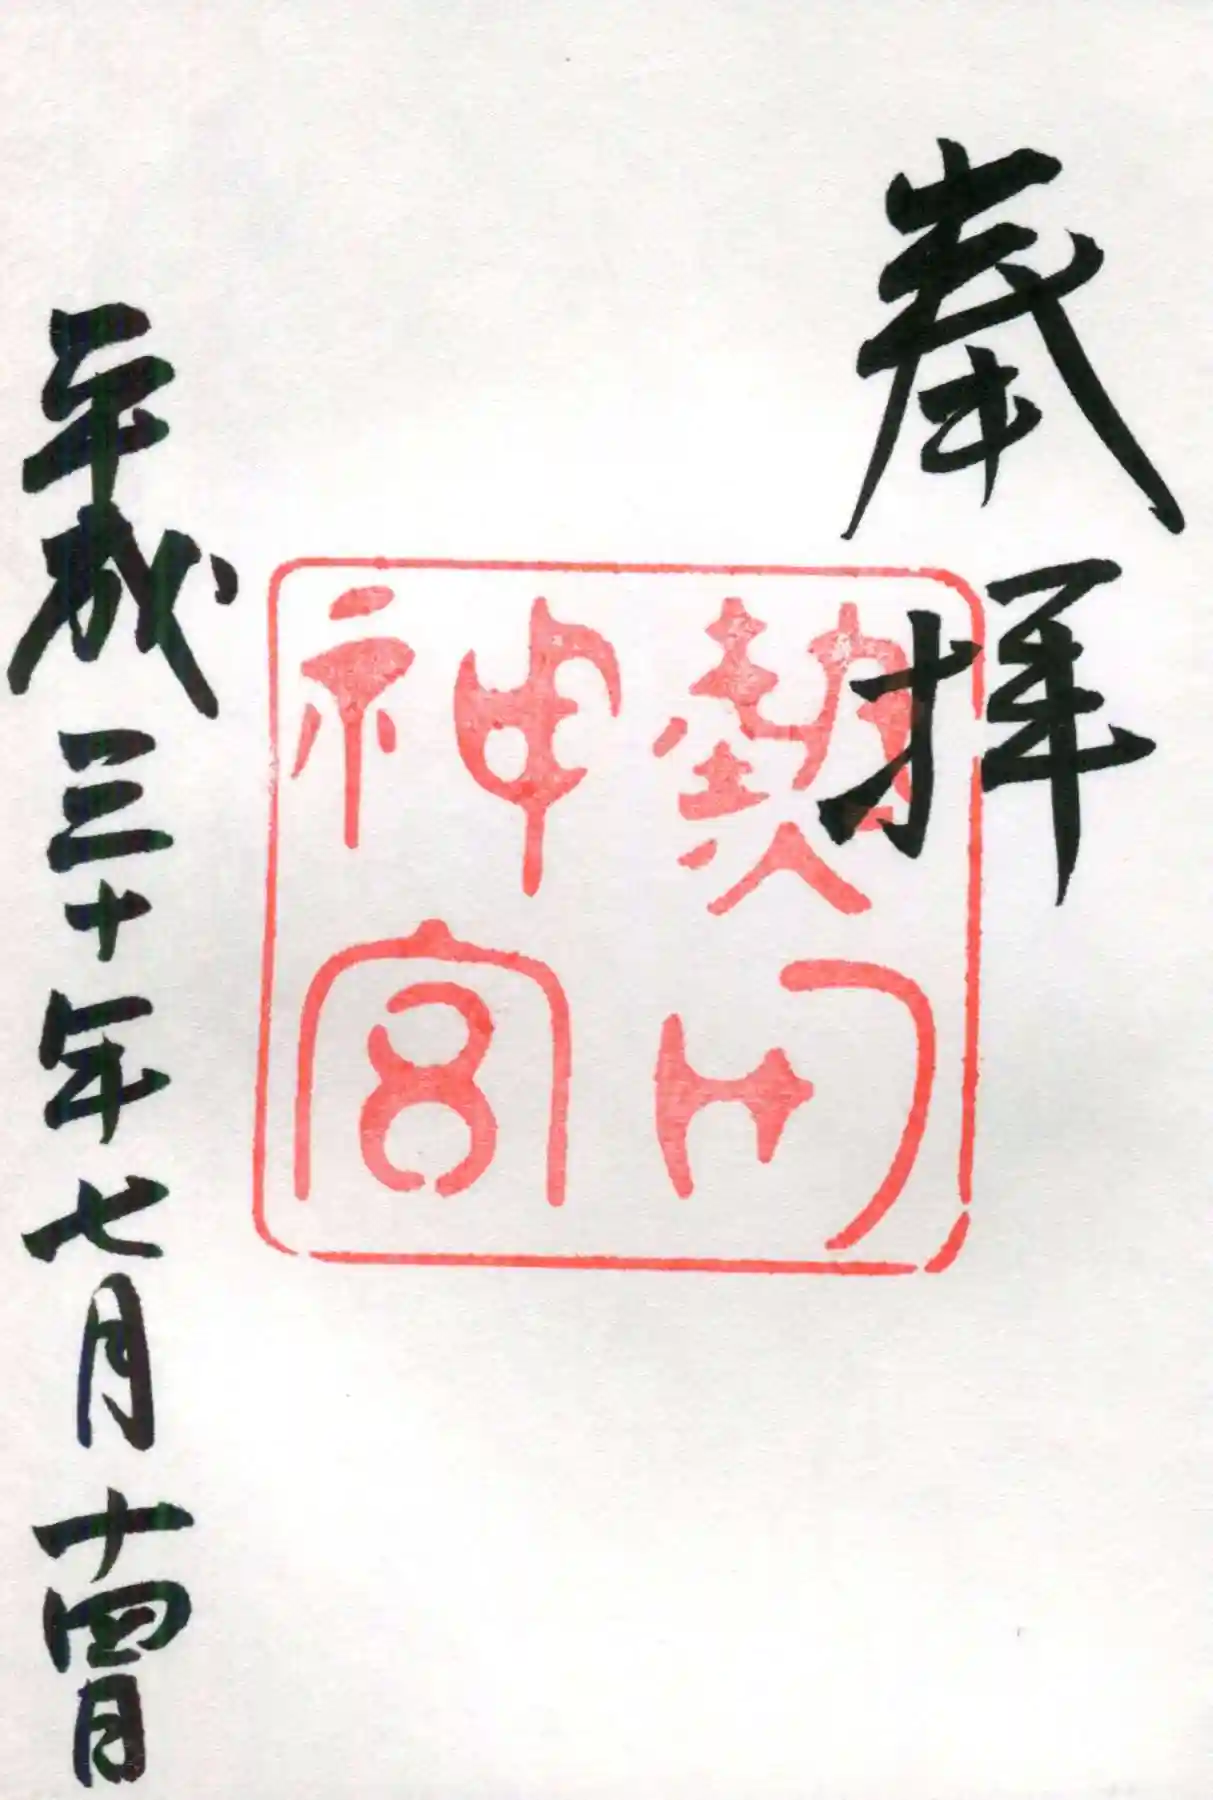 奉拝
熱田
神宮
平成三十年七月十四日